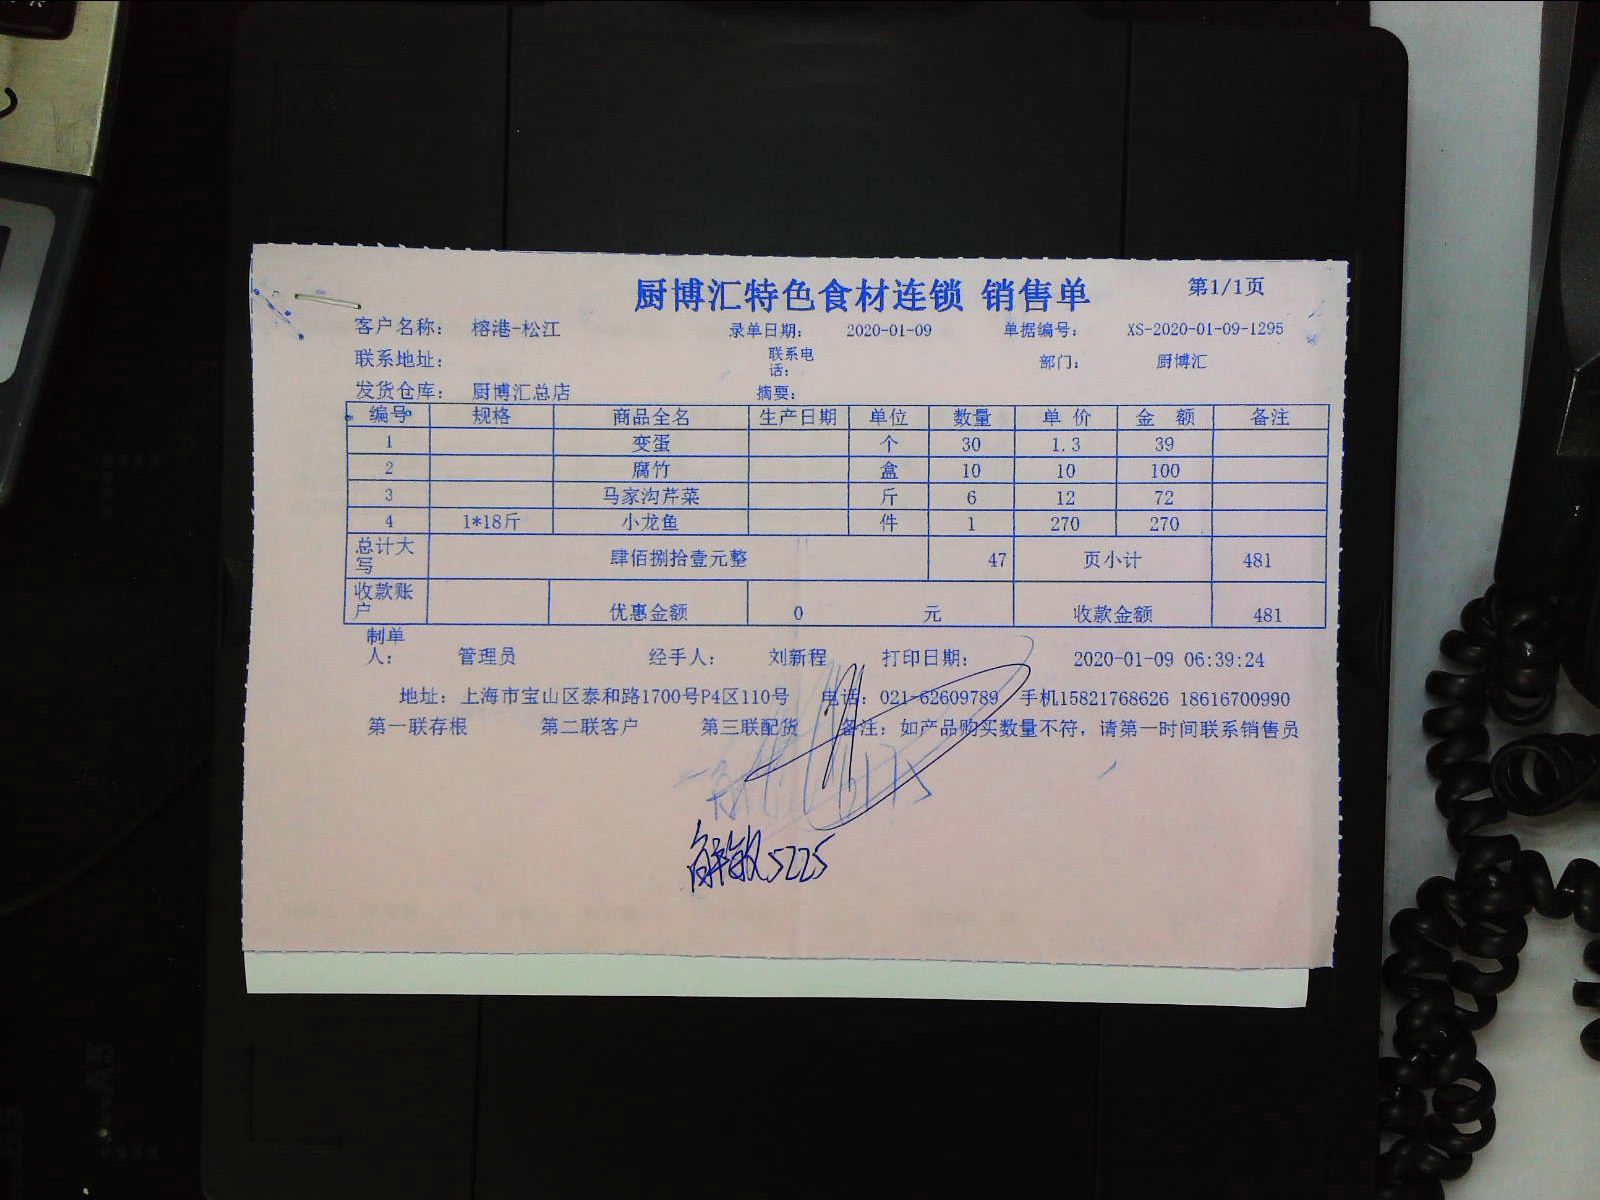 厨博汇特色食材连锁 销售单 第1/1页
客户名称： 榕港-松江 录单日期： 2020-01-09 单据编号： XS-2020-01-09-1295
联系地址： 联系电话： 部门： 厨博汇
发货仓库： 厨博汇总店 摘要：
编号 规格 商品全名 生产日期 单位 数量 单价 金额 备注
1 变蛋 个 30 1.3 39
2 腐竹 盒 10 10 100
3 马家沟芹菜 斤 6 12 72
4 1*18斤 小龙鱼 件 1 270 270
总计大写 肆佰捌拾壹元整 47 页小计 481
收款账户 优惠金额 0 元 收款金额 481
制单人： 管理员 经手人： 刘新程 打印日期： 2020-01-09 06:39:24
地址：上海市宝山区泰和路1700号P4区110号 电话：021-62609789 手机15821768626 18616700990
第一联存根 第二联客户 第三联配货 备注：如产品购买数量不符，请第一时间联系销售员
解敏5225